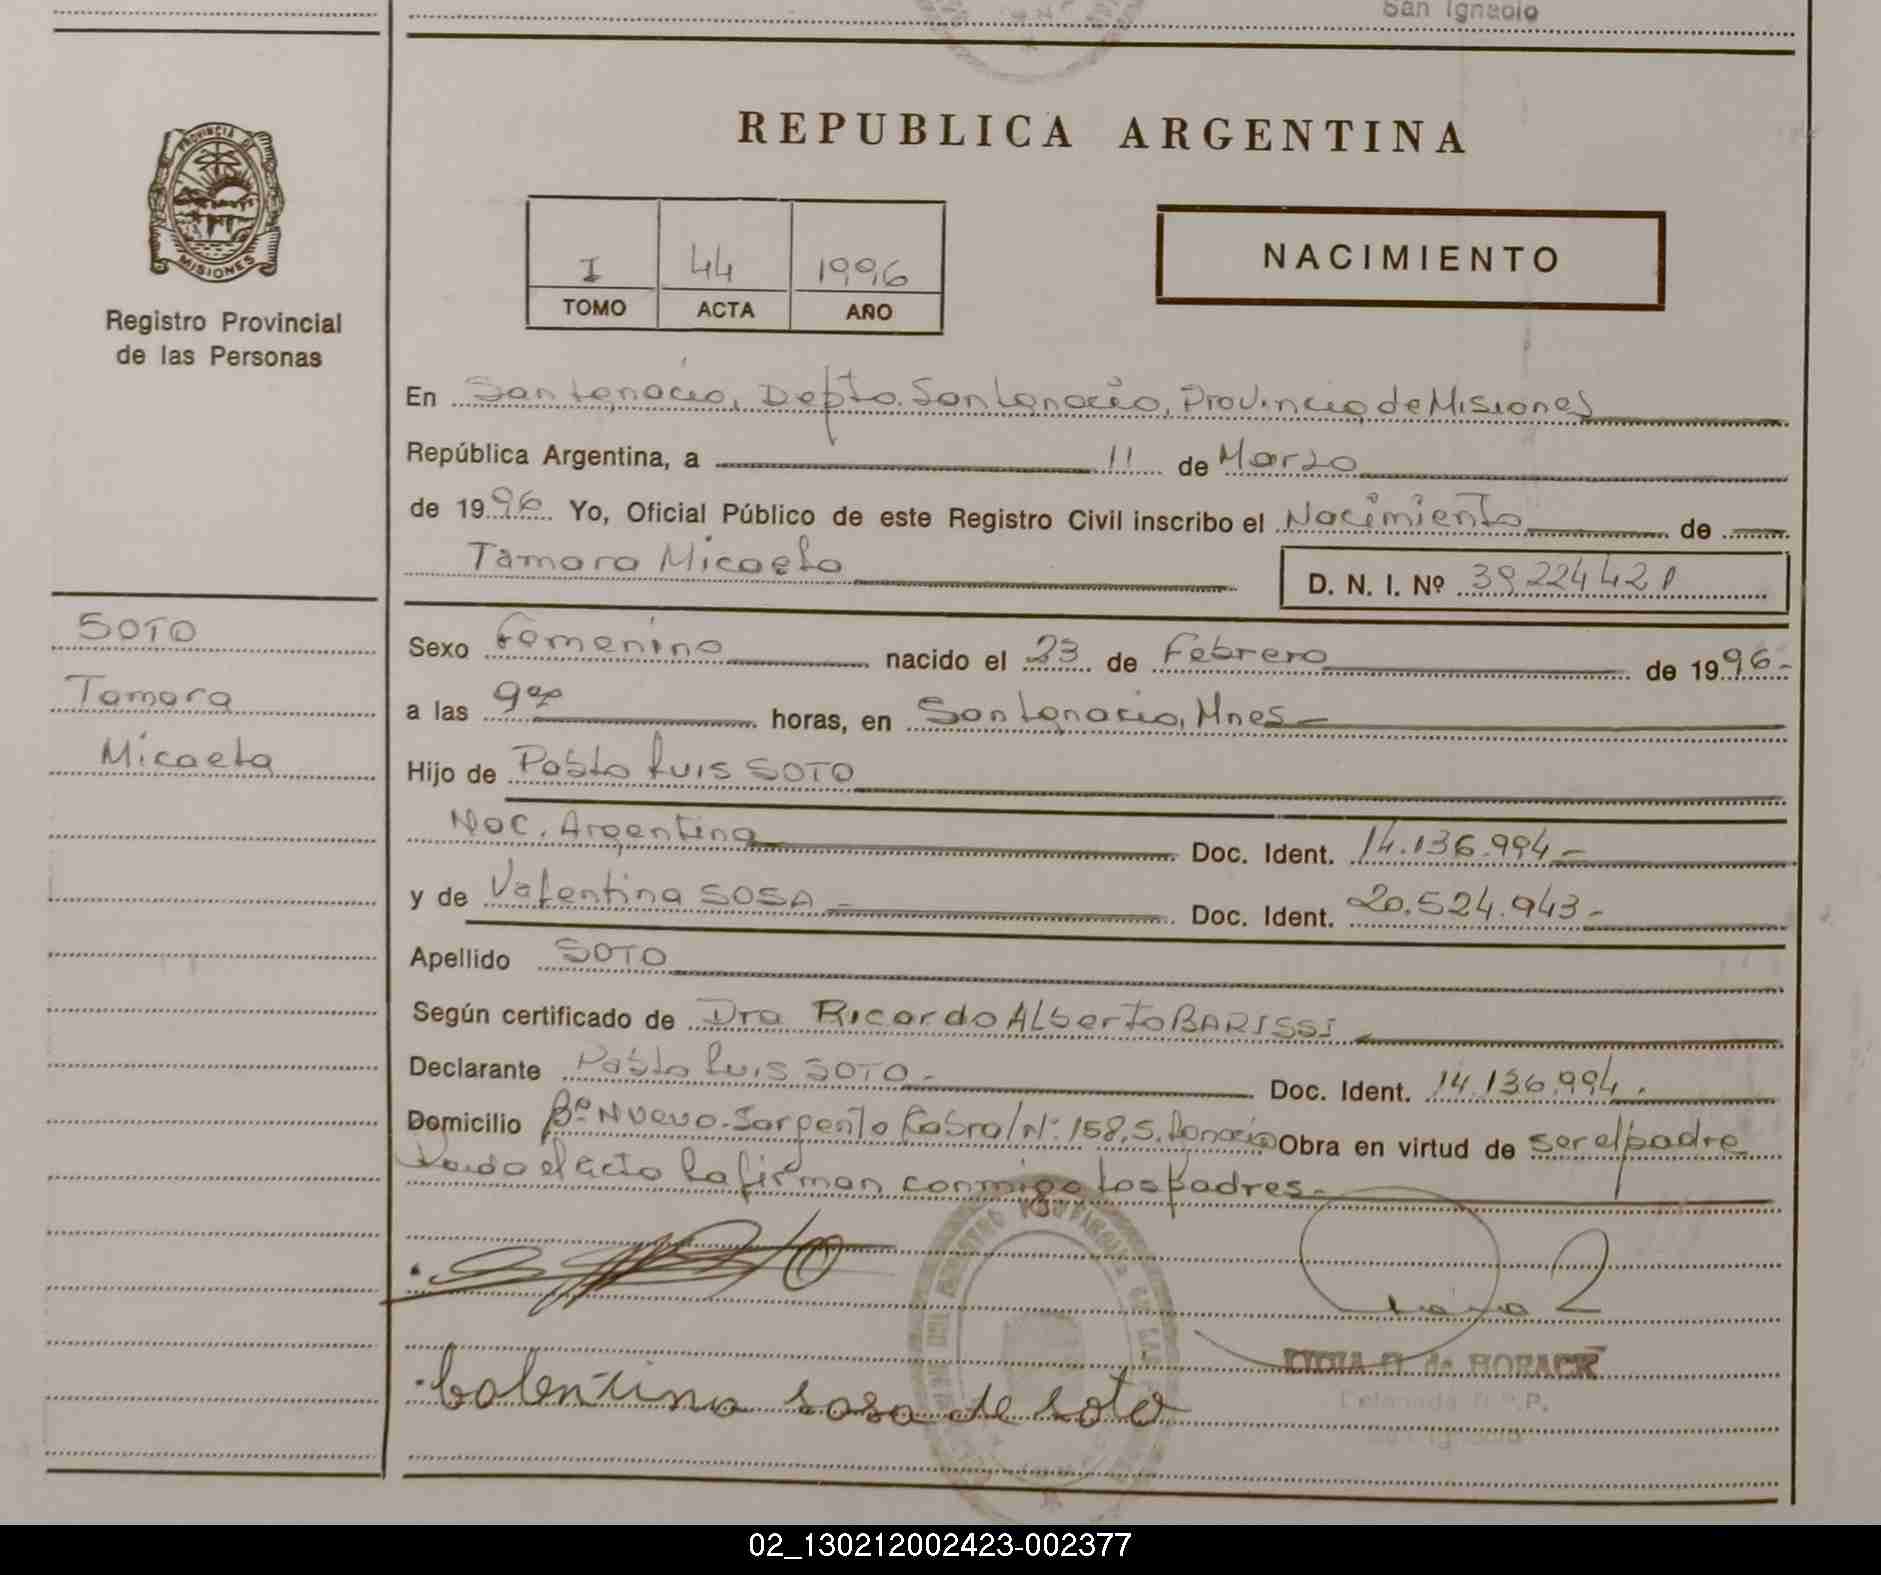 San Ignacio
REPUBLICA ARGENTINA
PROVINCIA DE
MISIONES
Registro Provincial
de las Personas
I 44 1996
TOMO ACTA AÑO
NACIMIENTO
En San Ignacio, Depto. San Ignacio, Provincia de Misiones
República Argentina, a 11 de Marzo
de 1996 Yo, Oficial Público de este Registro Civil inscribo el Nacimiento de
Tamara Micaela D. N. I. Nº 39224421
SOTO
Tamara
Micaela
Sexo Femenino nacido el 23 de Febrero de 1996-
a las 9 horas, en San Ignacio, Mnes-
Hijo de Pablo Luis SOTO
Nac. Argentina Doc. Ident. 14.136.994-
y de Valentina SOSA- Doc. Ident. 20.524.943-
Apellido SOTO
Según certificado de Dra Ricardo Alberto BARISSI
Declarante Pablo Luis SOTO- Doc. Ident. 14.136.994.
Domicilio Bº Nuevo-Sargento Cabral Nº 158, S. Ignacio Obra en virtud de ser el padre
Leido el acta la firman conmigo los padres-
Valentina sosa de soto
de HORACK
02_130212002423-002377